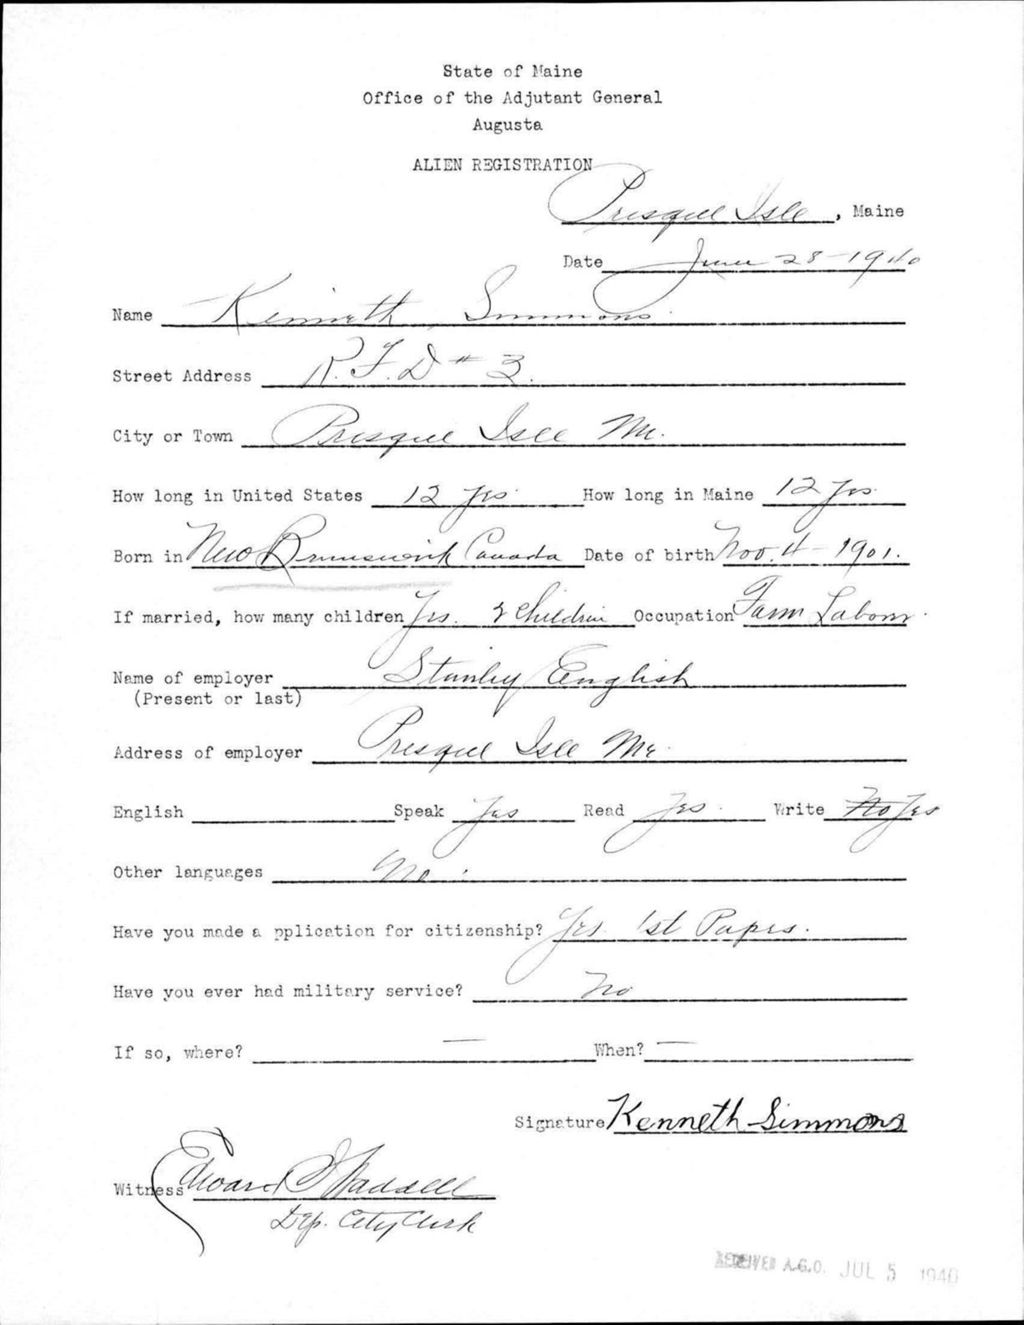 State of Maine
Office of the Adjutant General
Augusta
ALIEN REGISTRATION
Presque Isle, Maine
Date June 28-1940
Name Kenneth Simmons
Street Address R.F.D # 3.
City or Town Presque Isle Me.
How long in United States 12 yrs How long in Maine 12 yrs
Born in New Brunswick Canada Date of birth Nov. 4 - 1901.
If married, how many children Yes. Children Occupation Farm Laborer
Name of employer Stanley English
(Present or last)
Address of employer Presque Isle Me.
English Speak Yes Read Yes. Write No Yes
Other languages No.
Have you made a pplication for citizenship? Yes 1st Papers.
Have you ever had military service? No
If so, where? — When? —
Signature Kenneth Simmons
Witness Edward Waddell
Dep. City Clerk
RECEIVED A.G.O. JUL 5 1940